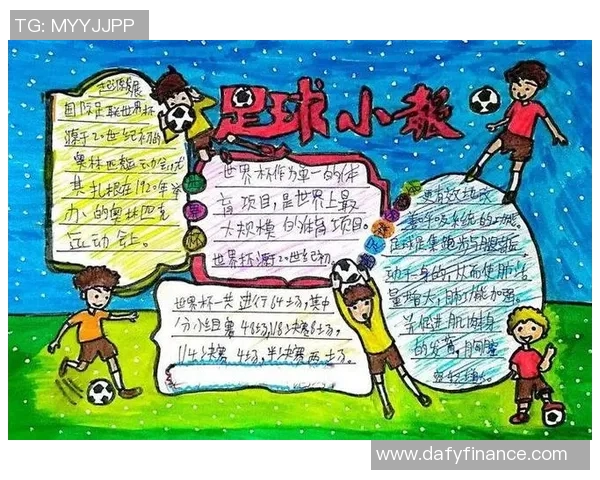 TG: MYYJJPP
足球小报
起源发展
国际足联世界杯
源于20世纪初的
奥林匹克运动会,尤
其扎根在1920年举
办的奥林匹克
运动会上。
世界杯作为单一的体
育项目,是世界上最
大规模的体育项目。
世界杯源于20世纪初
世界杯一共进行64场,其中
分小组赛48场,1/8决赛8场,
1/4决赛4场,半决赛两场。
更有效地改
善呼吸系统的功能。
足球是集跑步与
动于一身的,从而使肺活
量增大,
并促进肌肉
的发育,
www.dafyfinance.com